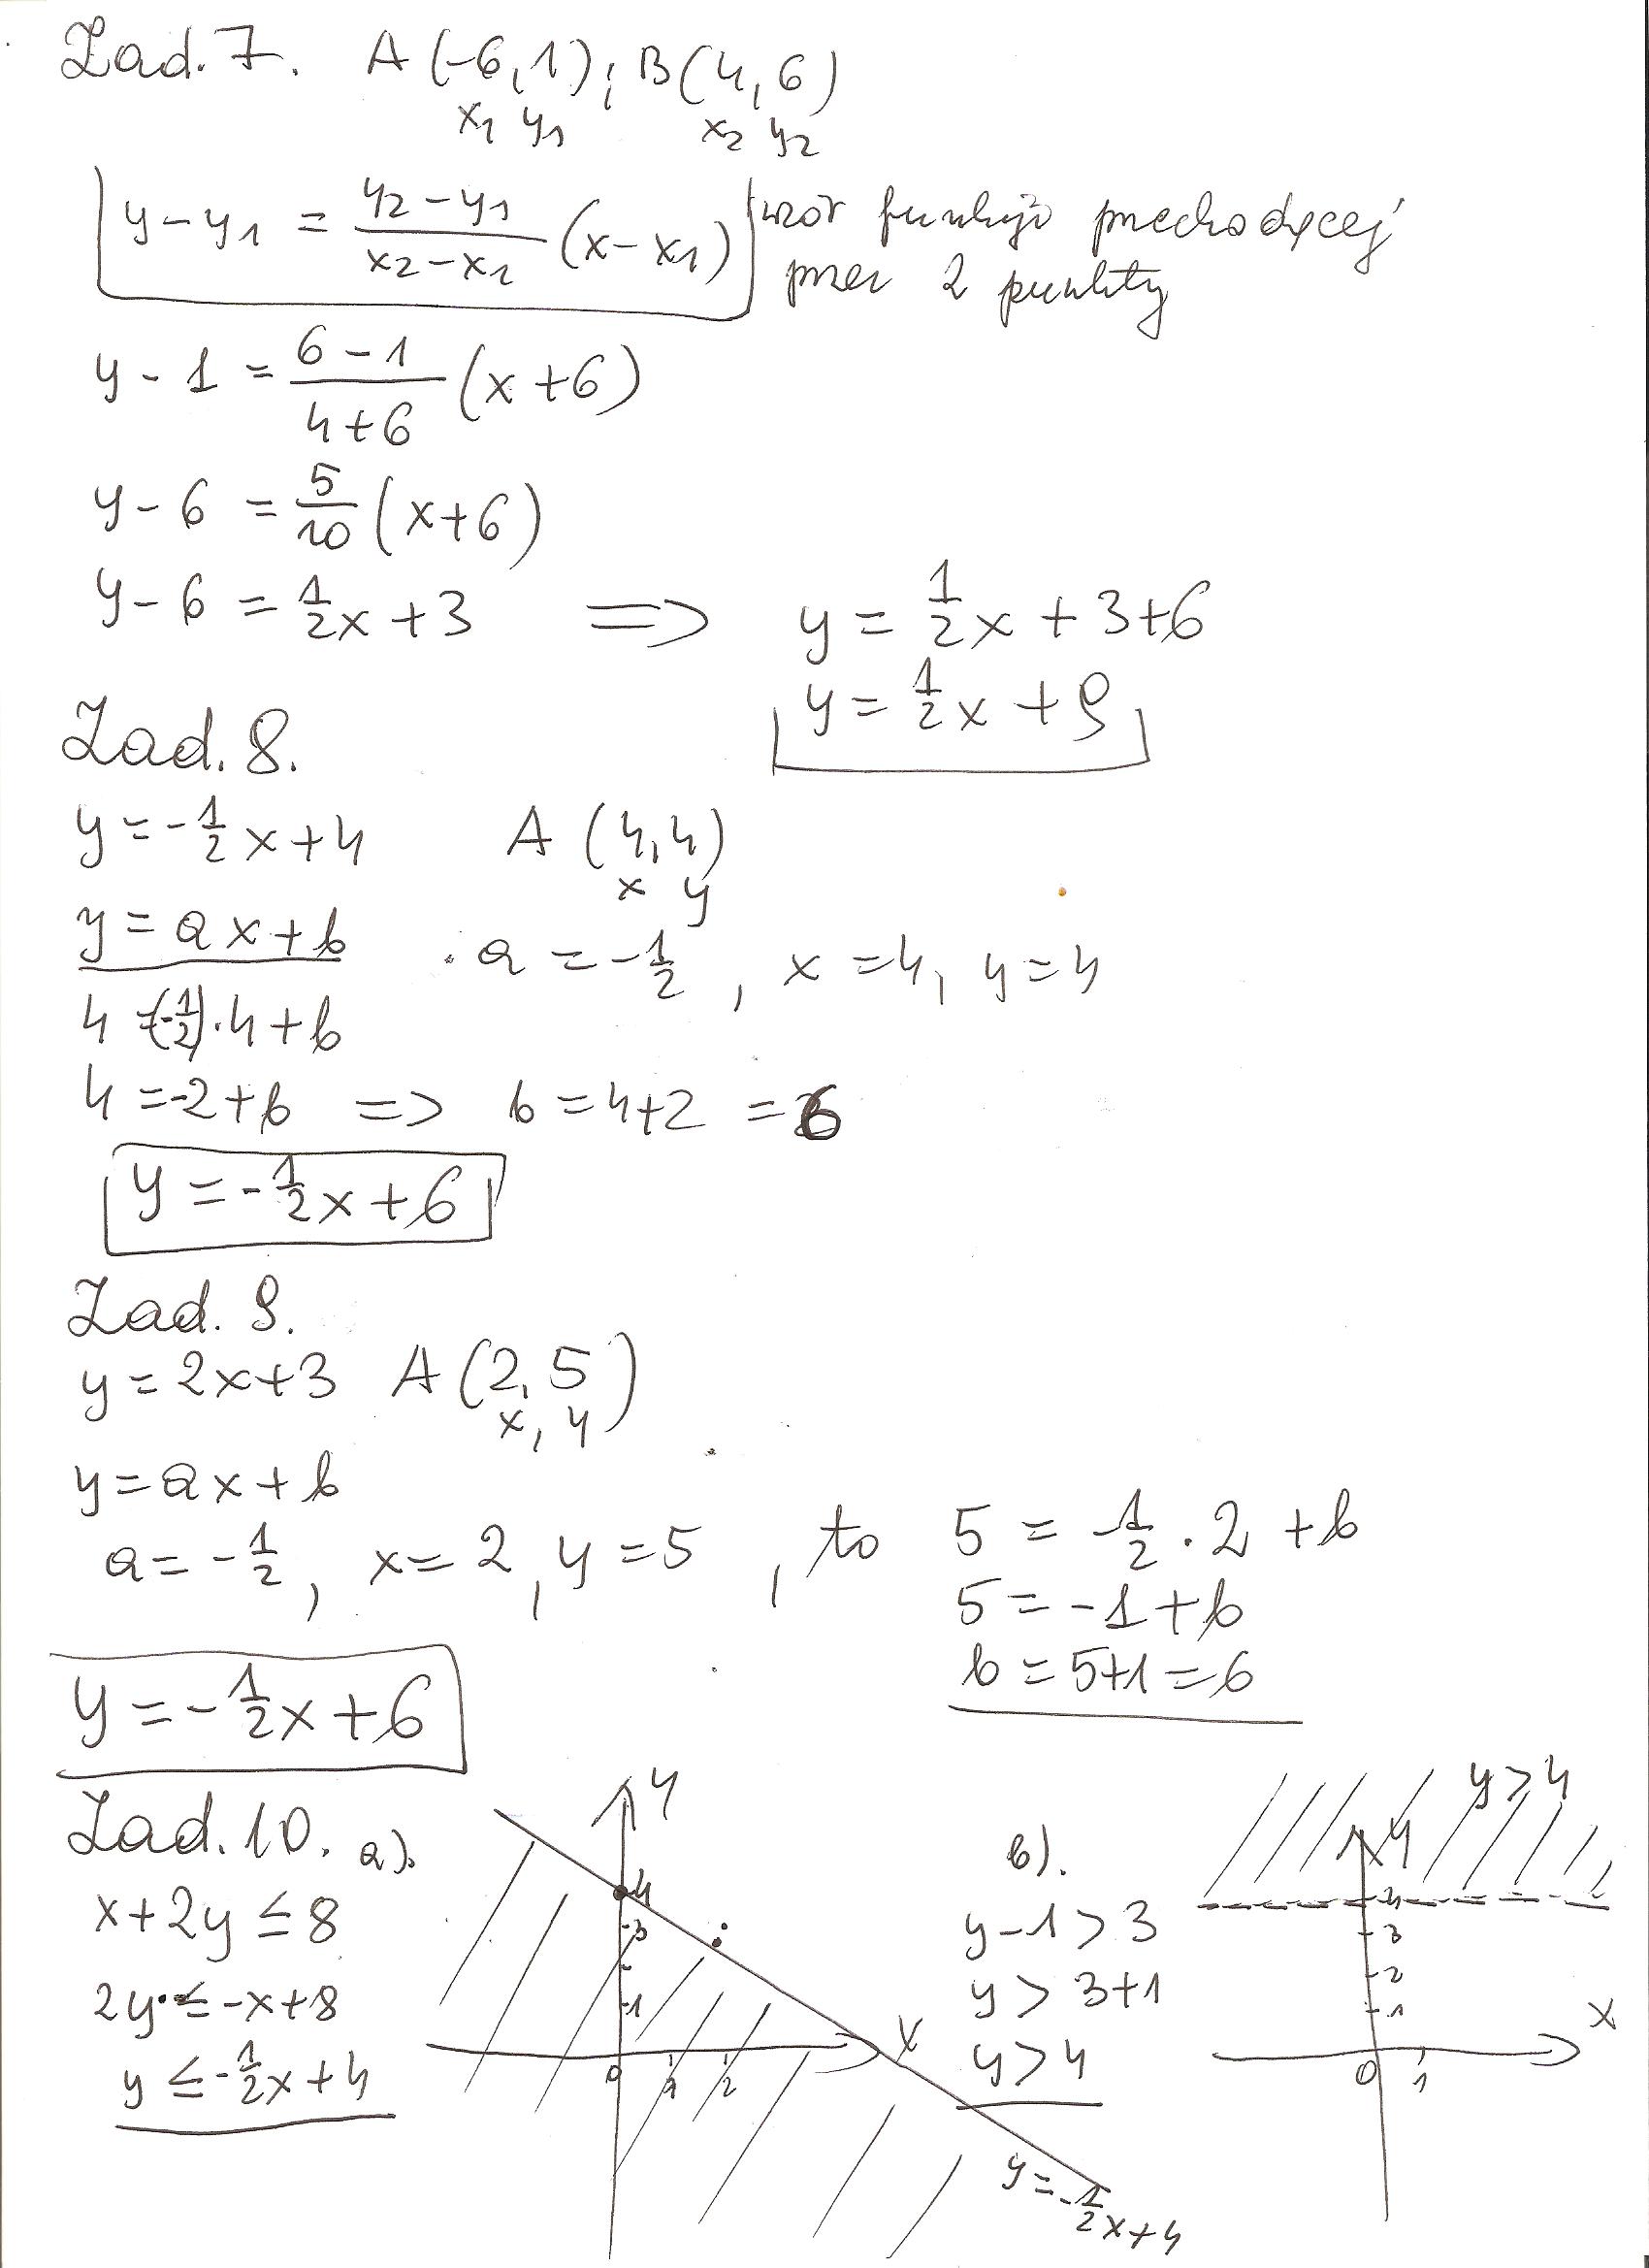 Zad. 7. A(-6,1); B(4,6)
x₁ y₁ x₂ y₂
y-y₁ = \frac{y₂-y₁}{x₂-x₁} (x-x₁) wzór funkcji przechodzącej
przez 2 punkty
y-1 = \frac{6-1}{4+6} (x+6)
y-6 = \frac{5}{10} (x+6)
y-6 = \frac{1}{2}x+3 => y = \frac{1}{2}x+3+6
y = \frac{1}{2}x+9
Zad. 8.
y = -\frac{1}{2}x+4 A(4,4)
x y
y = ax+b a = -\frac{1}{2}, x=4, y=4
4 = (-\frac{1}{2})·4+b
4 = -2+b => b = 4+2 = 6
y = -\frac{1}{2}x+6
Zad. 9.
y = 2x+3 A(2,5)
x, y
y = ax+b
a = -\frac{1}{2}, x = 2, y = 5, to 5 = -\frac{1}{2}·2+b
5 = -1+b
b = 5+1 = 6
y = -\frac{1}{2}x+6
Zad. 10. a).
x+2y ≤ 8
2y ≤ -x+8
y ≤ -\frac{1}{2}x+4
y
4
3
1
0 1 2
x
y = -\frac{1}{2}x+4
b).
y-1 > 3
y > 3+1
y > 4
y > 4
y
4
3
2
1
0 1
x